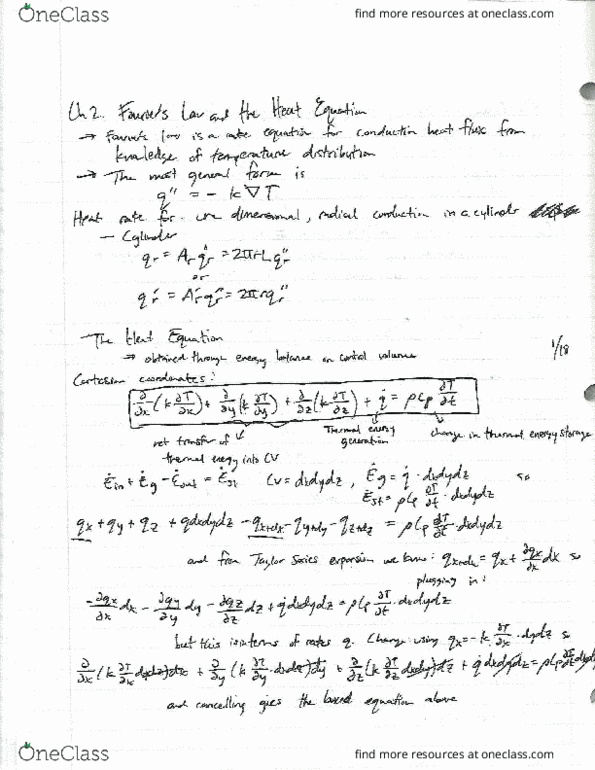 OneClass
find more resources at oneclass.com
Ch 2. Fourier's Law and the Heat Equation
→ Fourier's law is a rate equation for conduction heat flux from
knowledge of temperature distribution
→ The most general form is
q″ = - k∇T
Heat rate for one dimensional, radical conduction in a cylinder
— Cylinder
qr = Ar q″r = 2πrL q″r
or
q′r = A′r q″r = 2πr q″r
— The Heat Equation
1/18
→ obtained through energy balance on control volume
Cartesian coordinates:
∂/∂x (k ∂T/∂x) + ∂/∂y (k ∂T/∂y) + ∂/∂z (k ∂T/∂z) + q̇ = ρCp ∂T/∂t
net transfer of thermal energy into CV
Thermal energy generation
change in thermal energy storage
Ėin + Ėg - Ėout = Ėst CV = dxdydz, Ėg = q̇ · dxdydz so
Ėst = ρCp ∂T/∂t · dxdydz
qx + qy + qz + q̇dxdydz - qx+dx - qy+dy - qz+dz = ρCp ∂T/∂t · dxdydz
and from Taylor Series expansion we know: qx+dx = qx + ∂qx/∂x dx so
plugging in:
-∂qx/∂x dx - ∂qy/∂y dy - ∂qz/∂z dz + q̇dxdydz = ρCp ∂T/∂t · dxdydz
but this is in terms of rates q. Change using qx = -k ∂T/∂x · dydz so
∂/∂x (k ∂T/∂x dydz)dx + ∂/∂y (k ∂T/∂y · dxdz)dy + ∂/∂z (k ∂T/∂z dxdy)dz + q̇dxdydz = ρCp ∂T/∂t dxdydz
and cancelling gives the boxed equation above
OneClass
find more resources at oneclass.com